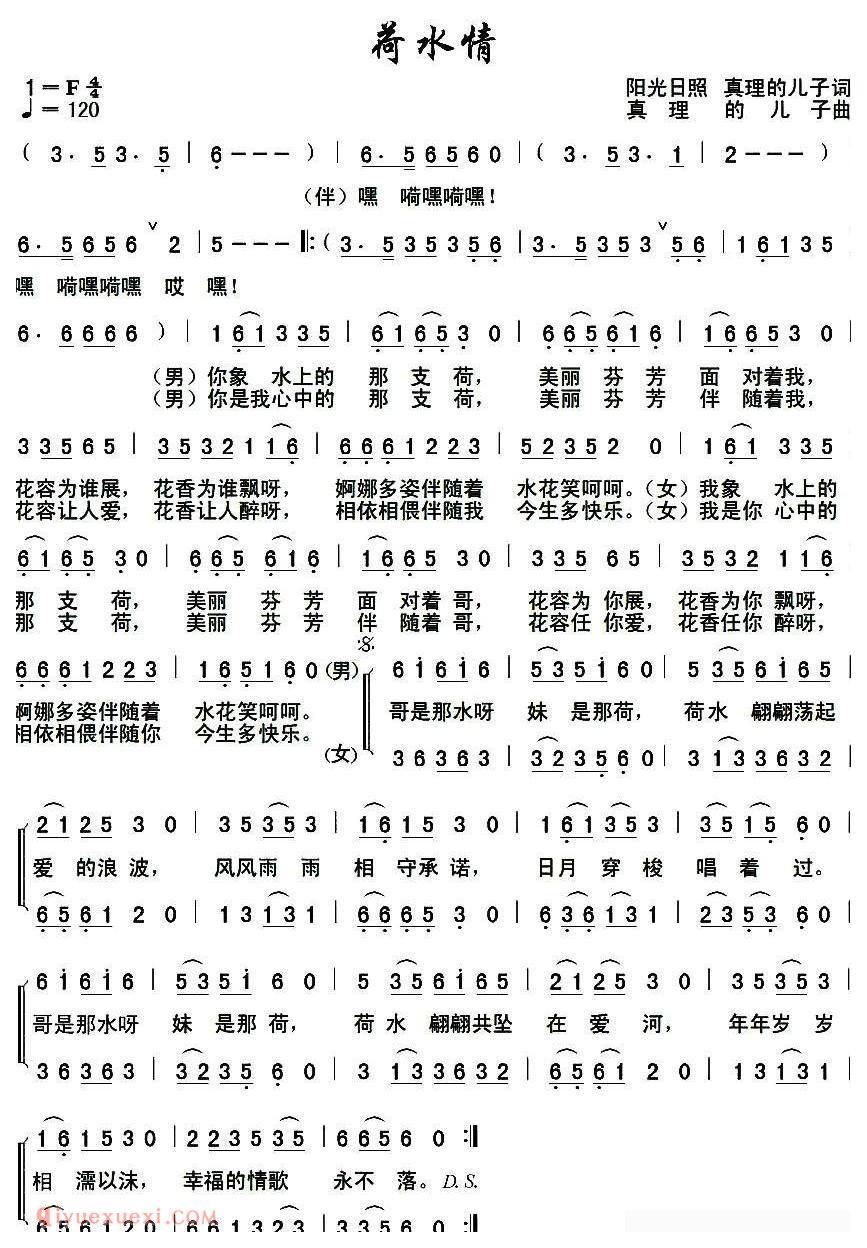 荷水情
1=F 4/4
♩=120
阳光日照 真理的儿子词
真理的儿子曲
( 3· 5 3· 5 | 6 - - - ) | 6· 5 6 5 6 0 | ( 3· 5 3· 1 | 2 - - - )
(伴)嘿 嗬嘿嗬嘿!
6· 5 6 5 6 ∨ 2 | 5 - - - ‖: ( 3· 5 3 5 3 5 6 | 3· 5 3 5 3 ∨ 5 6 | 1 6 1 3 5
嘿 嗬嘿嗬嘿 哎 嘿!
6· 6 6 6 6 ) | 1 6 1 3 3 5 | 6 1 6 5 3 0 | 6 6 5 6 1 6 | 1 6 6 5 3 0
(男)你象 水上的 那 支 荷, 美丽 芬 芳 面 对着我,
(男)你是我心中的 那 支 荷, 美丽 芬 芳 伴 随着我,
3 3 5 6 5 | 3 5 3 2 1 1 6 | 6 6 6 1 2 2 3 | 5 2 3 5 2 0 | 1 6 1 3 3 5
花容为谁展, 花香为谁飘呀, 婀娜多姿伴随着 水花笑呵呵。(女)我象 水上的
花容让人爱, 花香让人醉呀, 相依相偎伴随我 今生多快乐。(女)我是你 心中的
6 1 6 5 3 0 | 6 6 5 6 1 6 | 1 6 6 5 3 0 | 3 3 5 6 5 | 3 5 3 2 1 1 6
那 支 荷, 美丽 芬 芳 面 对着哥, 花容为 你展, 花香为你 飘呀,
那 支 荷, 美丽 芬 芳 伴 随着哥, 花容任 你爱, 花香任你 醉呀,
6 6 6 1 2 2 3 | 1 6 5 1 6 0 (男) 6 i 6 i 6 | 5 3 5 i 6 0 | 5 3 5 6 i 6 5
婀娜多姿伴随着 水花笑呵呵。 哥是那水呀 妹 是那荷, 荷水 翩翩荡起
相依相偎伴随你 今生多快乐。
(女) 3 6 3 6 3 | 3 2 3 5 6 0 | 3 1 3 3 6 3 2
2 1 2 5 3 0 | 3 5 3 5 3 | 1 6 1 5 3 0 | 1 6 1 3 5 3 | 3 5 1 5 6 0
爱 的浪 波, 风风雨 雨 相 守承 诺, 日月 穿 梭 唱 着 过。
6 5 6 1 2 0 | 1 3 1 3 1 | 6 6 6 5 3 0 | 6 3 6 1 3 1 | 2 3 5 3 6 0
6 i 6 i 6 | 5 3 5 i 6 0 | 5 3 5 6 i 6 5 | 2 1 2 5 3 0 | 3 5 3 5 3
哥是那水呀 妹 是那 荷, 荷 水 翩翩共坠 在 爱 河, 年年岁 岁
3 6 3 6 3 | 3 2 3 5 6 0 | 3 1 3 3 6 3 2 | 6 5 6 1 2 0 | 1 3 1 3 1
1 6 1 5 3 0 | 2 2 3 5 3 5 | 6 6 5 6 0 :‖
相 濡以沫, 幸福的情歌 永不 落。D.S.
6 5 6 1 2 0 | 6 6 1 3 2 3 | 3 3 2 3 0
Qiyuexuexi.com